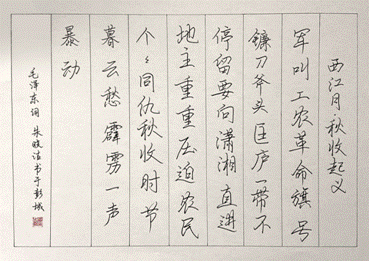 西江月秋收起义
军叫工农革命旗号
镰刀斧头匡庐一带不
停留要向潇湘直进
地主重重压迫农民
个々同仇秋收时节
暮云愁霹雳一声
暴动
毛泽东词 朱 洁书于彭城